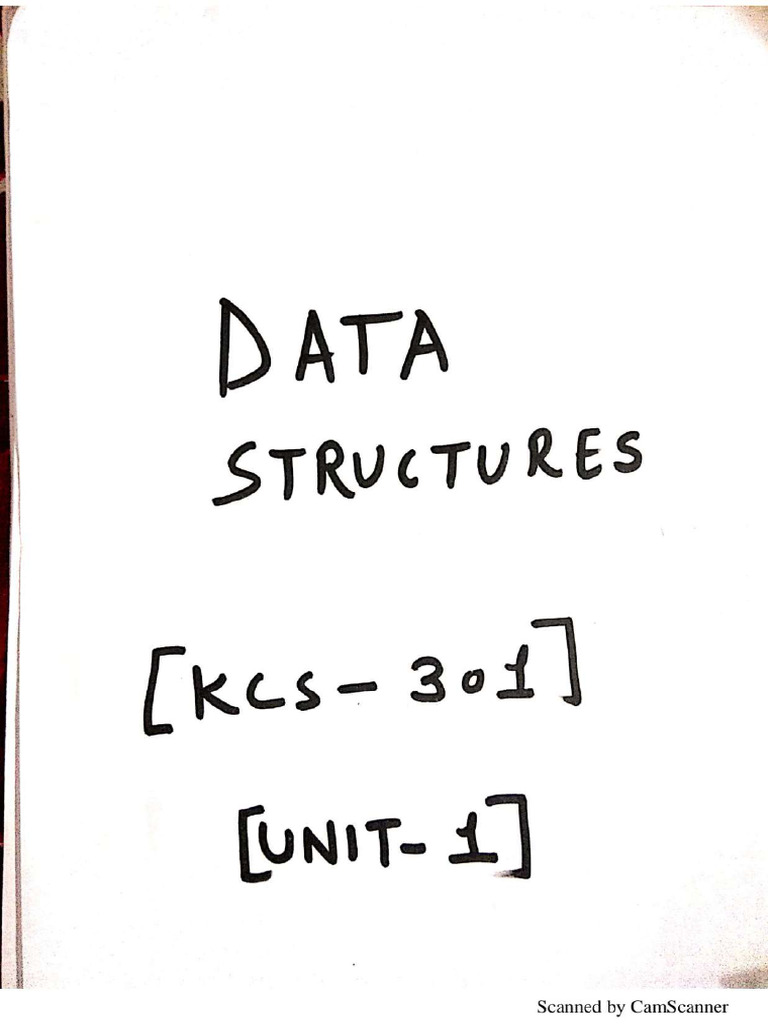 DATA
STRUCTURES
[KCS-301]
[UNIT-1]
Scanned by CamScanner